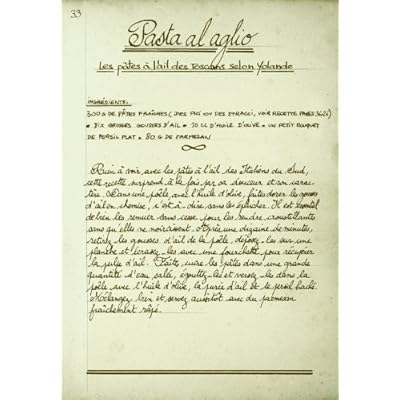 33
Pasta al aglio
Les pâtes à l'ail des Toscans selon Yolande
INGRÉDIENTS:
300 G DE PÂTES FRAÎCHES (DES PICI OU DES STRACCI, VOIR RECETTE PAGES 36,26)
• DIX GROSSES GOUSSES D'AIL • 10 CL D'HUILE D'OLIVE • UN PETIT BOUQUET
DE PERSIL PLAT • 80 G DE PARMESAN
Rien à voir avec les pâtes à l'ail des Italiens du Sud,
cette recette surprend à la fois par sa douceur et son carac-
tère. Dans une poêle, avec l'huile d'olive, faites dorer les gousses
d'ail en chemise, c'est-à-dire sans les éplucher. Il est essentiel
de bien les remuer sans cesse pour les rendre croustillantes
sans qu'elles ne noircissent. Après une dizaine de minutes,
retirez les gousses d'ail de la poêle, déposez-les sur une
planche et écrasez-les avec une fourchette pour récupérer
la pulpe d'ail. Faites cuire les pâtes dans une grande
quantité d'eau salée, égouttez-les et versez-les dans la
poêle avec l'huile d'olive, la purée d'ail et le persil haché.
Mélangez bien et servez aussitôt avec du parmesan
fraîchement râpé.